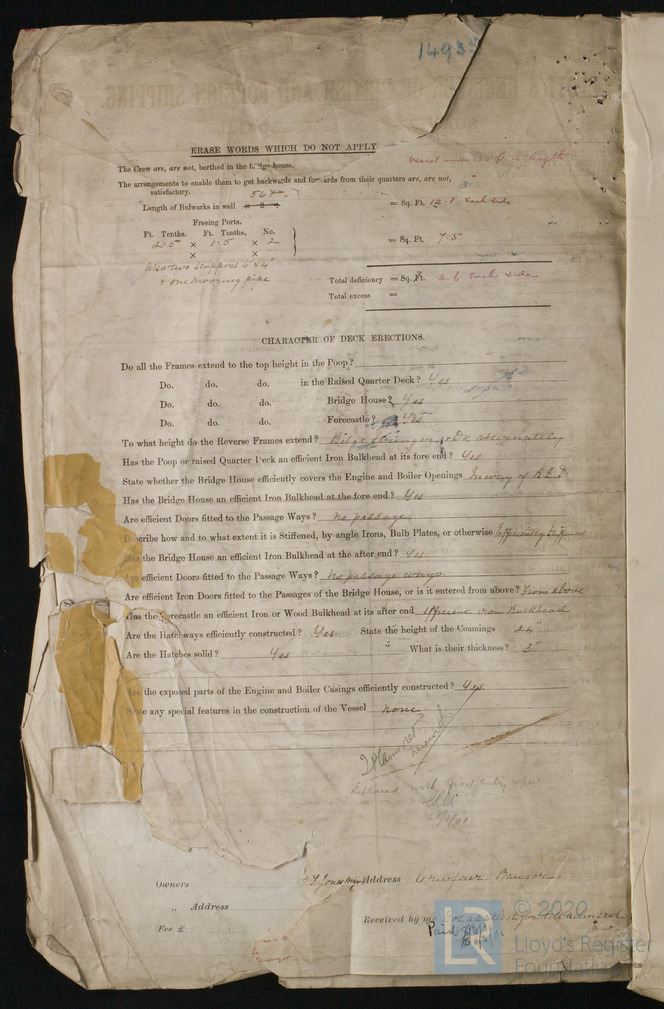 1493
ERASE WORDS WHICH DO NOT APPLY
The Crew are, are not, berthed in the bridge house.
vessel under
length
The arrangements to enable them to get backwards and forwards from their quarters are, are not,
satisfactory.
56
Length of Bulwarks in well = Sq. Ft. 12.1 Each side
Freeing Ports.
Ft. Tenths. Ft. Tenths. No.
2.5 × 1.5 × 2 = Sq. Ft. 7.5
× ×
Also two
& one mooring pipe
Total deficiency = Sq. Ft. 4.6 Each side
Total excess =
CHARACTER OF DECK ERECTIONS.
Do all the Frames extend to the top height in the Poop?
Do. do. do. in the Raised Quarter Deck? Yes
Do. do. do. Bridge House? Yes
Do. do. do. Forecastle? Yes
To what height do the Reverse Frames extend? Bilge Stringer & Dk alternately
Has the Poop or raised Quarter Deck an efficient Iron Bulkhead at its fore end? Yes
State whether the Bridge House efficiently covers the Engine and Boiler Openings In way of R.Q.D.
Has the Bridge House an efficient Iron Bulkhead at the fore end? Yes
Are efficient Doors fitted to the Passage Ways? no passage
Describe how and to what extent it is Stiffened, by angle Irons, Bulb Plates, or otherwise efficiently stiffened
the Bridge House an efficient Iron Bulkhead at the after end? Yes
efficient Doors fitted to the Passage Ways? No passage ways.
Are efficient Iron Doors fitted to the Passages of the Bridge House, or is it entered from above? From above
Has the Forecastle an efficient Iron or Wood Bulkhead at its after end efficient iron Bulkhead
Are the Hatchways efficiently constructed? Yes State the height of the Coamings 24"
Are the Hatches solid? Yes " What is their thickness? 3"
Are the exposed parts of the Engine and Boiler Casings efficiently constructed? Yes.
State any special features in the construction of the Vessel none.
with first entry report
Owners Address Bangor
„ Address
Received by me
Fee £
Paid
LR
© 2020
Lloyd's Register
Foundation